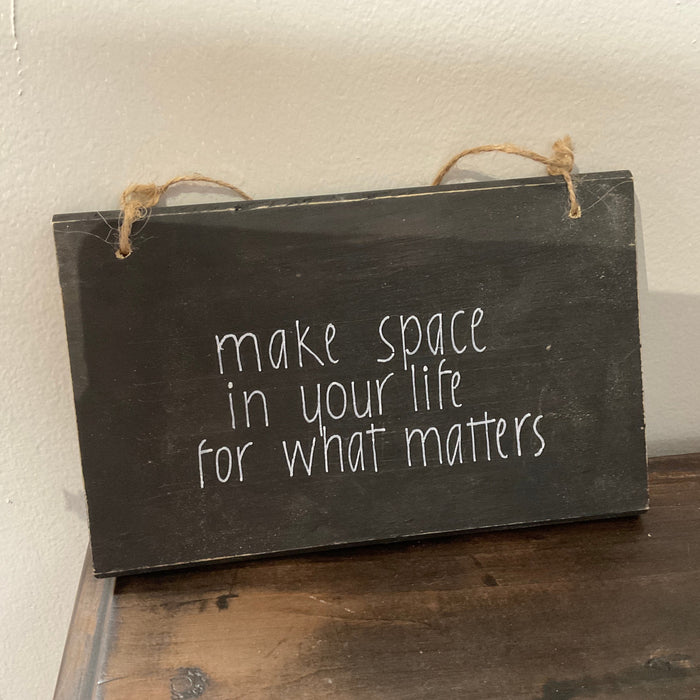 make space
in your life
for what matters